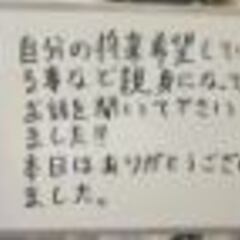 自分の授業希望してい
る事など親身になって
お話を聞いて下さり
ました!!
本日はありがとうござい
ました。